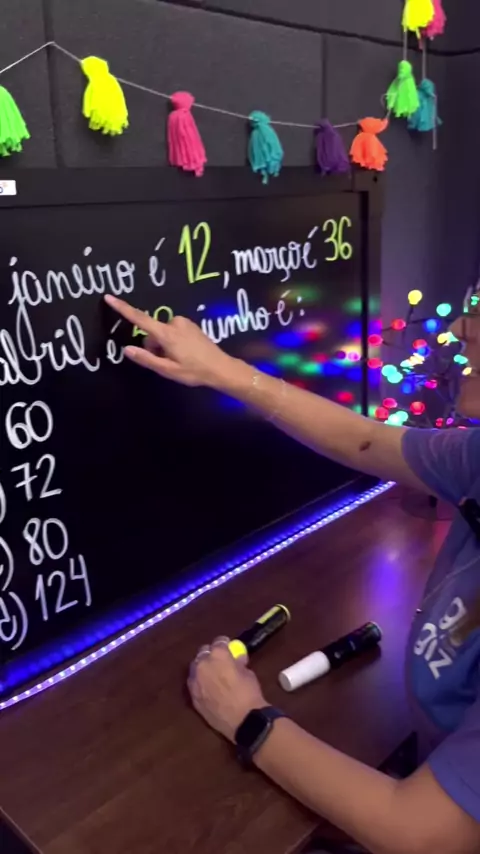 janeiro é 12, março é 36
abril é junho é:
60
72
80
d) 124
giz